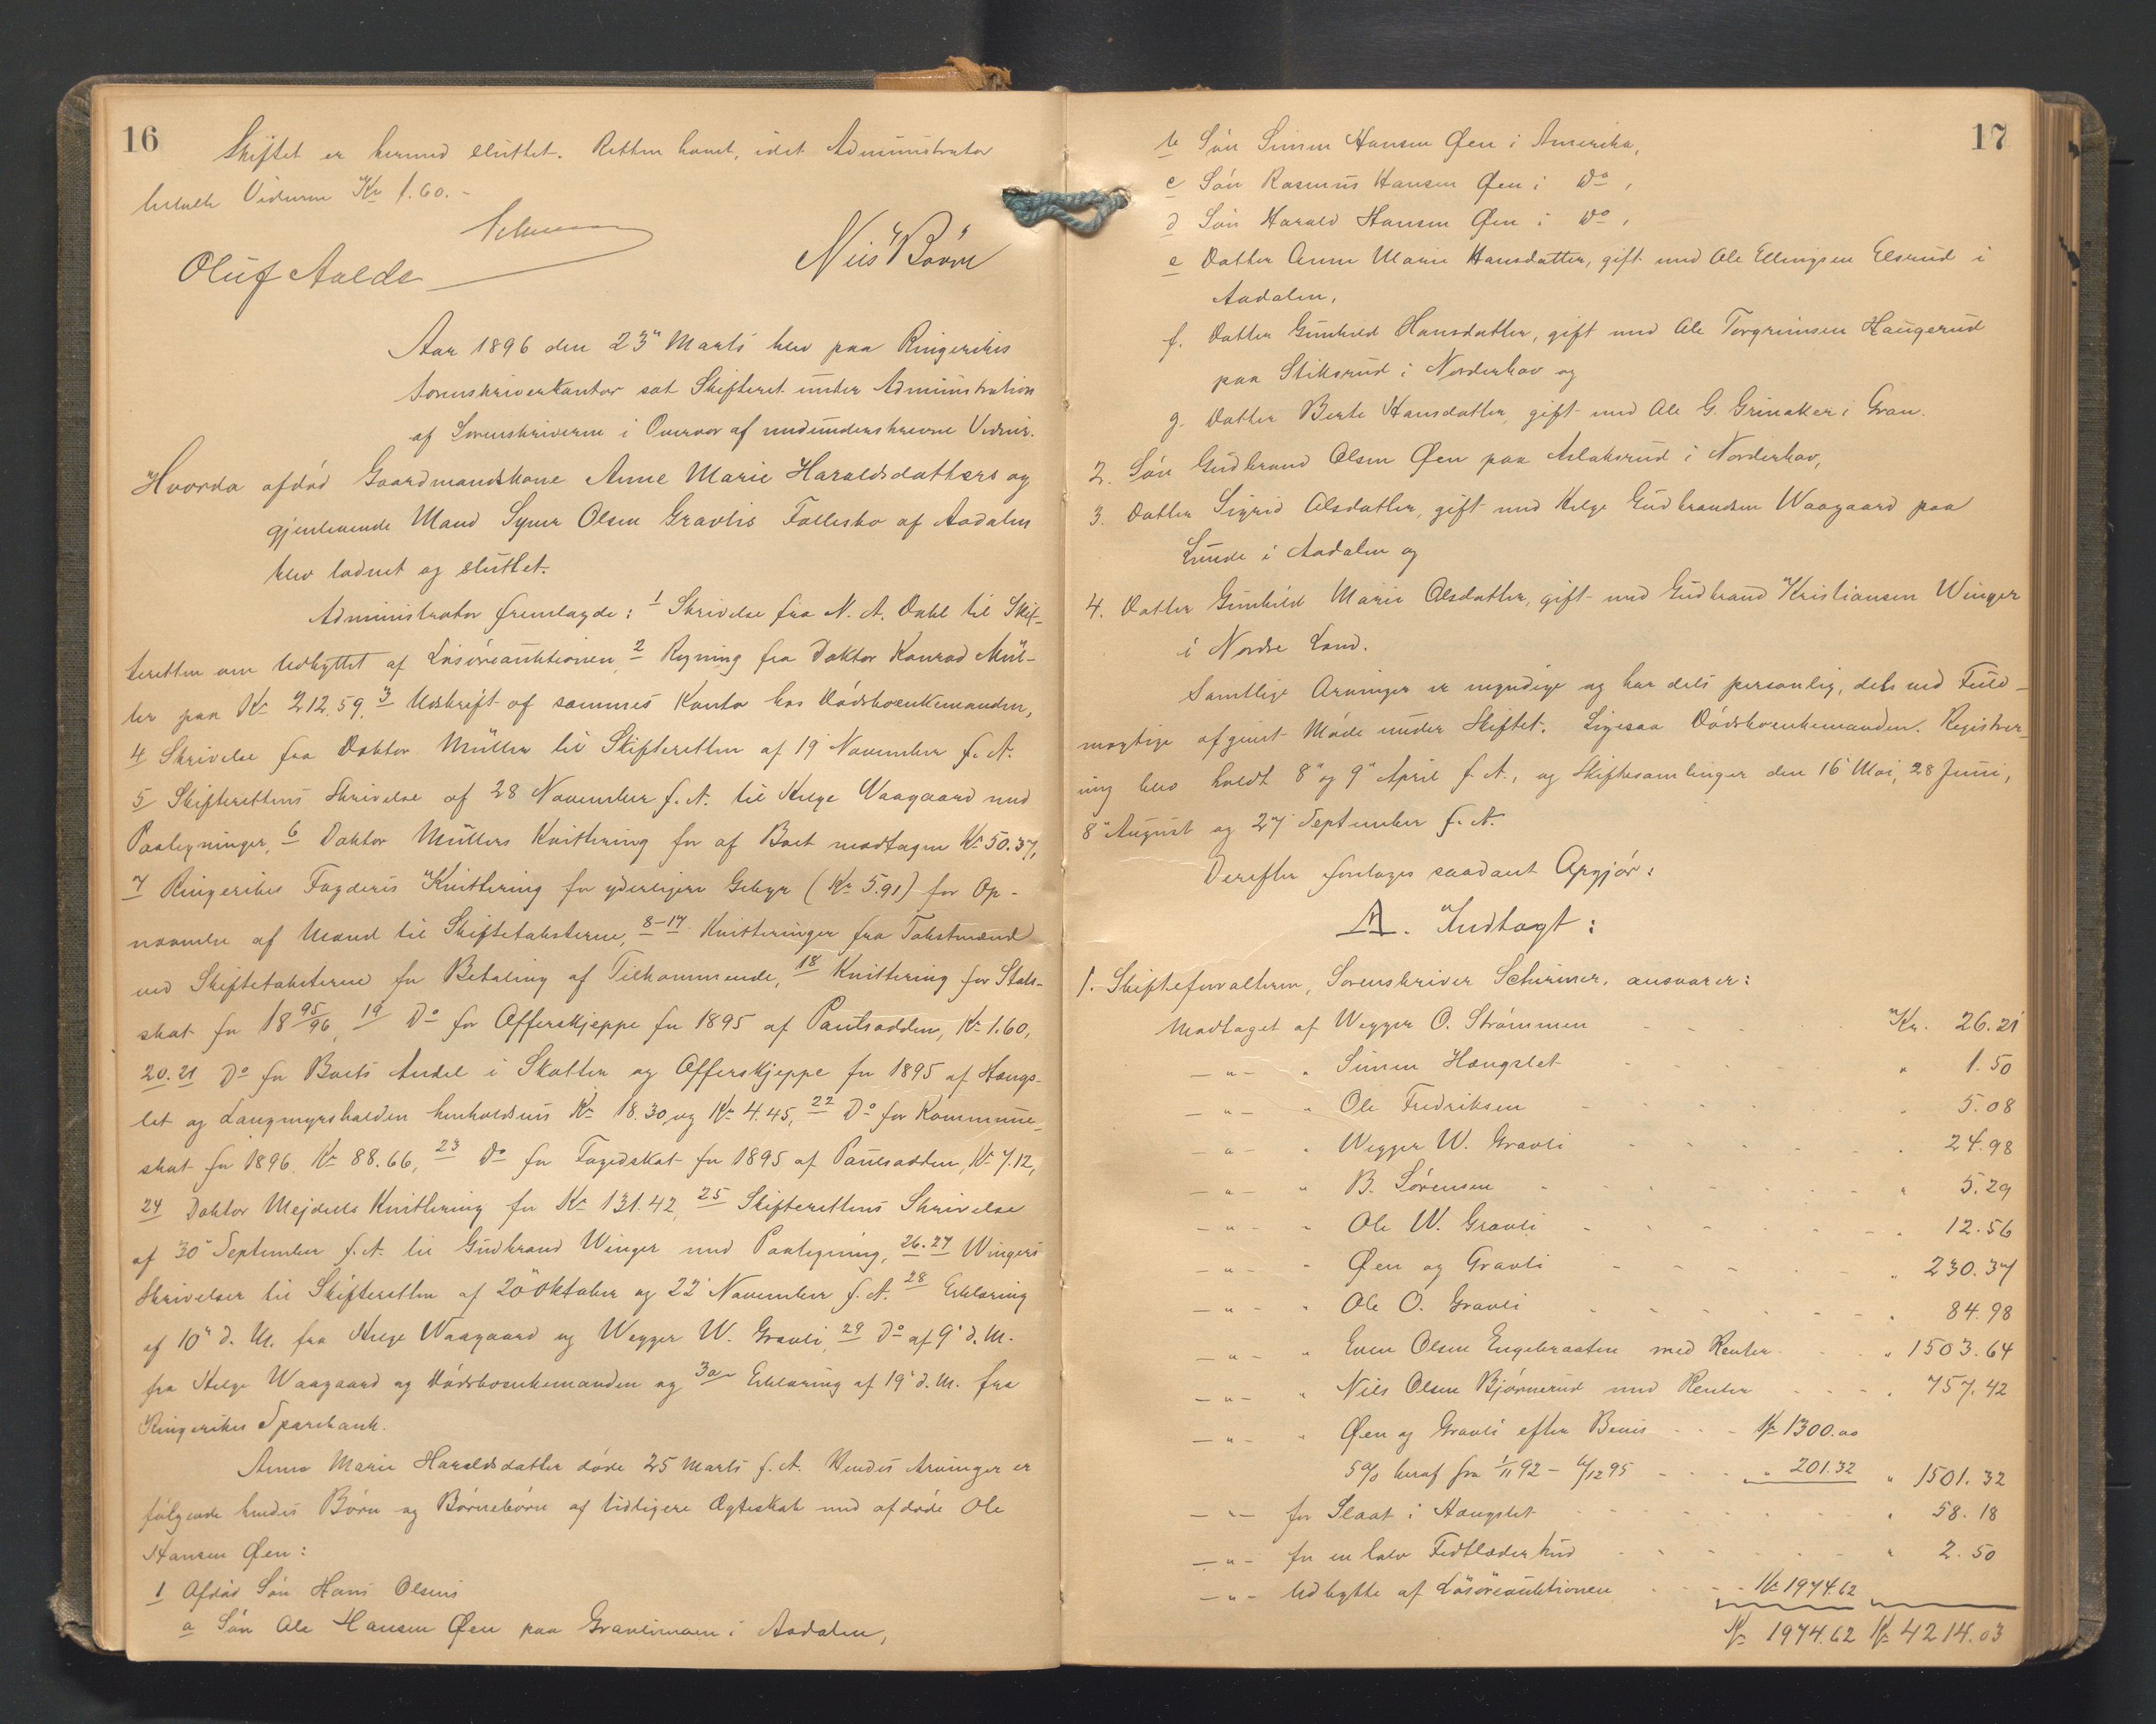 16
Skiftet er hermed sluttet. Retten hævet, idet Administrator
betalte Vidnerne Kr 1.60.-
Oluf Aalde
Nils Bøvre
Aar 1896 den 23' Marts blev paa Ringerikes
Sorenskriverkontor sat Skifteret under Administration
af Sorenskriveren i Overvær af medunderskrevne Vidner.
Hvorda afdød Gaardmandskone Anne Marie Haraldsdatters og
gjenlevende Mand Syver Olsen Gravlis Fællesbo af Aadalen
blev lodnet og sluttet.
Administrator fremlagde: 1 Skrivelse fra N. A. Dahl til Skif-
teretten om Udbyttet af Løsøreauktionen, 2 Regning fra Doktor Konrad Mül-
ler paa Kr 212.59, 3 Udskrift af sammes Konto hos Dødsboenkemanden,
4 Skrivelse fra Doktor Müller til Skifteretten af 19' November f. A.
5 Skifterettens Skrivelse af 28 November f. A. til Helge Waagaard med
Paategninger, 6 Doktor Müllers Kvittering for af Boet modtagen Kr 50.37,
7 Ringerikes Fogderis Kvittering for yderligere Gebyr (Kr 5.91) for Op-
nævnelse af Mænd til Skiftetaksterne, 8-17 Kvitteringer fra Takstmænd
ved Skiftetaksterne for Betaling af Tilkommende, 18 Kvittering for Stats-
skat for 1895/96, 19 Do for Offerskjeppe for 1895 af Paulsodden, Kr 1.60,
20.21 Do for Boets Andel i Skatten og Offerskjeppe for 1895 af Hængs-
let og Langmyrshalden henholdsvis Kr 18.30 og Kr 4.45, 22 Do for Kommune-
skat for 1896 Kr 88.66, 23 Do for Fogedskat for 1895 af Paulsodden, Kr 7.12,
24 Doktor Mejdells Kvittering for Kr 131.42, 25 Skifterettens Skrivelse
af 30' September f. A. til Gudbrand Winger med Paategning, 26.27 Wingers
Skrivelser til Skifteretten af 20' Oktober og 22' November f. A. 28 Erklæring
af 10' d. M. fra Helge Waagaard og Wegger W. Gravli, 29 Do af 9' d. M.
fra Helge Waagaard og Dødsboenkemanden og 30 Erklæring af 19' d. M. fra
Ringerikes Sparebank.
Anne Marie Haraldsdatter døde 25 Marts f. A. Hendes Arvinger er
følgende hendes Børn og Børnebørn af tidligere Ægteskab med afdøde Ole
Hansen Øen:
1 Afdød Søn Hans Olsens
a Søn Ole Hansen Øen paa Gravlimoen i Aadalen,
17
b Søn Simen Hansen Øen i Amerika,
c Søn Rasmus Hansen Øen i Do,
d Søn Harald Hansen Øen i Do,
e Datter Anne Marie Hansdatter, gift med Ole Ellingsen Elsrud i
Aadalen,
f. Datter Gunhild Hansdatter, gift med Ole Torgrimsen Haugerud
paa Stiksrud i Norderhov og
g. Datter Berte Hansdatter, gift med Ole G. Grinaker i Gran.
2. Søn Gudbrand Olsen Øen paa Aslaksrud i Norderhov,
3. Datter Sigrid Olsdatter, gift med Helge Gudbrandsen Waagaard paa
Lunde i Aadalen og
4. Datter Gunhild Marie Olsdatter, gift med Gudbrand Kristiansen Winger
i Nordre Land.
Samtlige Arvinger er myndige og har dels personlig, dels ved Fuld-
mægtige afgivet Møde under Skiftet. Ligesaa Dødsboenkemanden. Registrer-
ing blev holdt 8' og 9' April f. A., og Skiftesamlinger den 16' Mai, 28 Juni,
8' August og 27' September f. A.
Derefter foretoges saadant Opgjør:
A. Indtægt:
1. Skifteforvalteren, Sorenskriver Schirmer, ansvarer:
Modtaget af Wegger O. Strømmen Kr. 26.21
—„— „ Simen Hængslet „ 1.50
—„— „ Ole Fredriksen „ 5.08
—„— „ Wegger W. Gravli „ 24.98
—„— „ B. Sørensen „ 5.29
—„— „ Ole W. Gravli „ 12.56
—„— „ Øen og Gravli „ 230.37
—„— „ Ole O. Gravli „ 84.98
—„— „ Even Olsen Engebraaten med Renter „ 1503.64
—„— „ Nils Olsen Bjørnerud med Renter „ 757.42
—„— „ Øen og Gravli efter Bevis Kr 1300.00
5% heraf fra 1/11 92 – 6/12 95 „ 201.32 „ 1501.32
—„— for Slaat i Hængslet „ 58.18
—„— for en halv Fedtlæderhud „ 2.50
—„— Udbytte af Løsøreauktionen Kr 1974.62
Kr 1974.62 Kr 4214.03